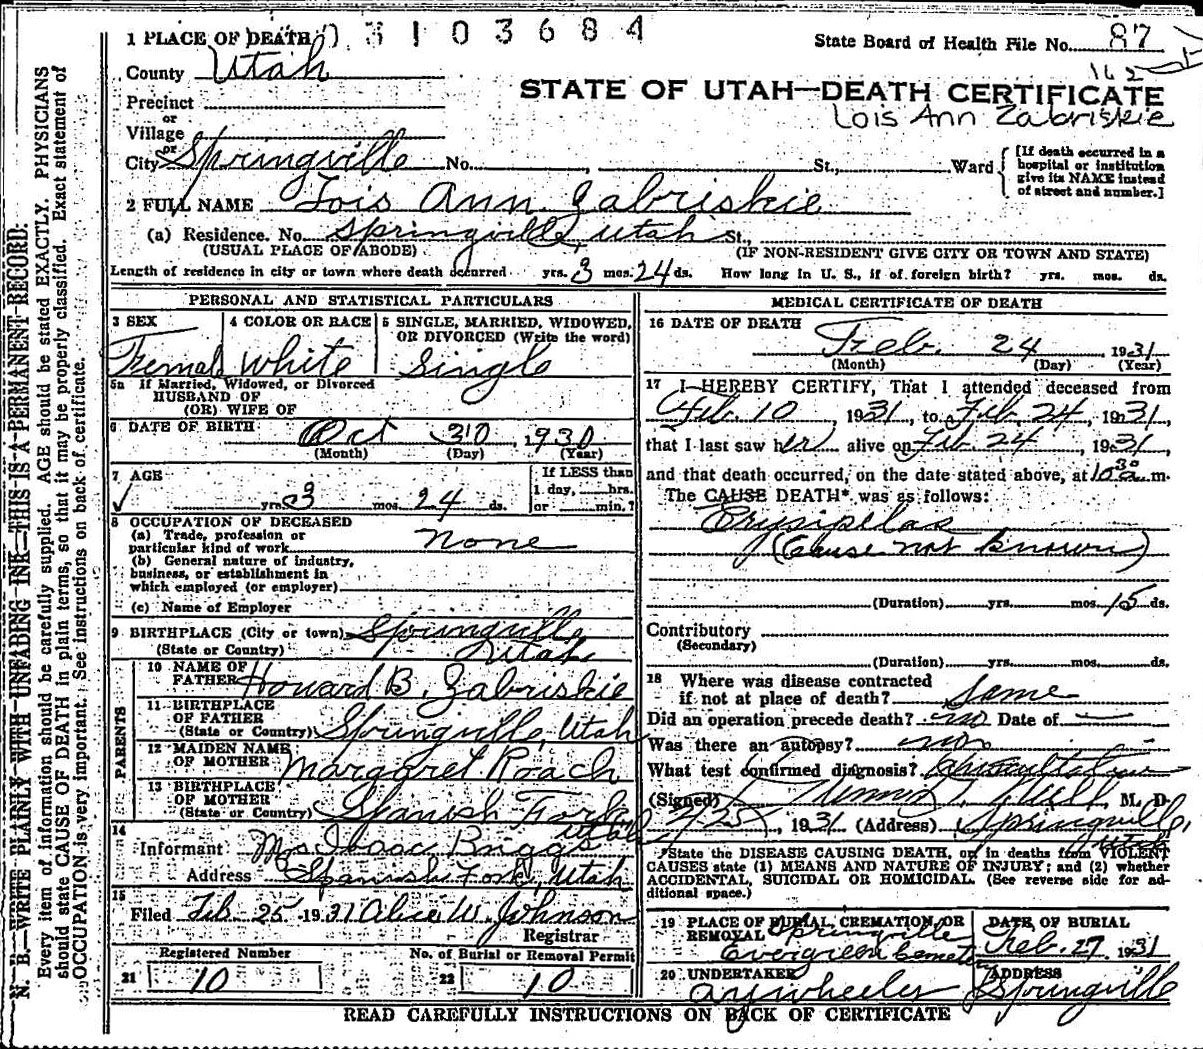 1 PLACE OF DEATH 03103684
State Board of Health File No. 87
County Utah
162
STATE OF UTAH—DEATH CERTIFICATE
Precinct
Lois Ann Zabriskie
or
Village
or
City Springville No. , St., Ward
[If death occurred in a hospital or institution give its NAME instead of street and number.]
2 FULL NAME Lois Ann Zabriskie
(a) Residence. No. Springville, Utah St.,
(USUAL PLACE OF ABODE) (IF NON-RESIDENT GIVE CITY OR TOWN AND STATE)
Length of residence in city or town where death occurred yrs. 3 mos. 24 ds. How long in U. S., if of foreign birth? yrs. mos. ds.
PERSONAL AND STATISTICAL PARTICULARS
3 SEX 4 COLOR OR RACE 5 SINGLE, MARRIED, WIDOWED,
OR DIVORCED (Write the word)
Female White Single
5a If Married, Widowed, or Divorced
HUSBAND OF
(OR) WIFE OF
6 DATE OF BIRTH Oct 30, 1930
(Month) (Day) (Year)
7 AGE If LESS than
1 day, hrs.
yrs. 3 mos. 24 ds. or min.?
8 OCCUPATION OF DECEASED
(a) Trade, profession or
particular kind of work None
(b) General nature of industry,
business, or establishment in
which employed (or employer)
(c) Name of Employer
9 BIRTHPLACE (City or town) Springville
(State or Country) Utah
PARENTS
10 NAME OF
FATHER Howard B. Zabriskie
11 BIRTHPLACE
OF FATHER
(State or Country) Springville, Utah
12 MAIDEN NAME
OF MOTHER Margaret Roach
13 BIRTHPLACE
OF MOTHER
(State or Country) Spanish Fork
Utah
14
Informant Mrs Isaac Briggs
Address Spanish Fork, Utah
15
Filed Feb 25 1931 Alice W. Johnson
Registrar
Registered Number No. of Burial or Removal Permit
21 10 22 10
MEDICAL CERTIFICATE OF DEATH
16 DATE OF DEATH
Feb. 24 1931
(Month) (Day) (Year)
17 I HEREBY CERTIFY, That I attended deceased from
Feb. 10, 1931, to Feb. 24, 1931,
that I last saw her alive on Feb. 24, 1931,
and that death occurred, on the date stated above, at 10 30 a.m.
The CAUSE DEATH* was as follows:
Erysipelas
(Cause not known)
(Duration) yrs. mos. 15 ds.
Contributory
(Secondary)
(Duration) yrs. mos. ds.
18 Where was disease contracted
if not at place of death? Same
Did an operation precede death? no Date of —
Was there an autopsy? no
What test confirmed diagnosis?
(Signed) , M. D.
2/25, 1931 (Address) Springville,
Utah
*State the DISEASE CAUSING DEATH, or in deaths from VIOLENT
CAUSES state (1) MEANS AND NATURE OF INJURY; and (2) whether
ACCIDENTAL, SUICIDAL OR HOMICIDAL. (See reverse side for ad-
ditional space.)
19 PLACE OF BURIAL, CREMATION OR DATE OF BURIAL
REMOVAL Springville
Evergreen Cemetery Feb. 27 1931
20 UNDERTAKER ADDRESS
A y wheeler Springville
READ CAREFULLY INSTRUCTIONS ON BACK OF CERTIFICATE
N. B.—WRITE PLAINLY WITH UNFADING INK—THIS IS A PERMANENT RECORD.
Every item of information should be carefully supplied. AGE should be stated EXACTLY. PHYSICIANS
should state CAUSE OF DEATH in plain terms, so that it may be properly classified. Exact statement of
OCCUPATION is very important. See instructions on back of certificate.